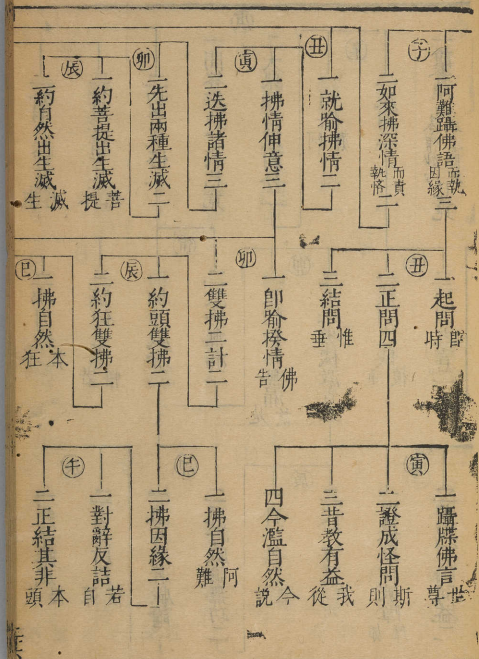 子
一阿難躡佛語而執因緣三
二如來拂深情而責執悋二
丑
一就喻拂情二
一拂情伸意三
寅
二迭拂諸情三
一先出兩種生滅二
卯
一約菩提出生滅菩提
辰
二約自然出生滅滅生
丑
一起問即時
二正問四
三結問惟垂
一即喻揆情佛告
卯
二雙拂二計二
一約頭雙拂二
辰
二約狂雙拂二
一拂自然本狂
巳
寅
一躡牒佛言世尊
二證成怪問斯則
三昔教有益我從
四今濫自然今說
一拂自然阿難
巳
二拂因緣二
一對辭反詰若自
午
二正結其非本頭